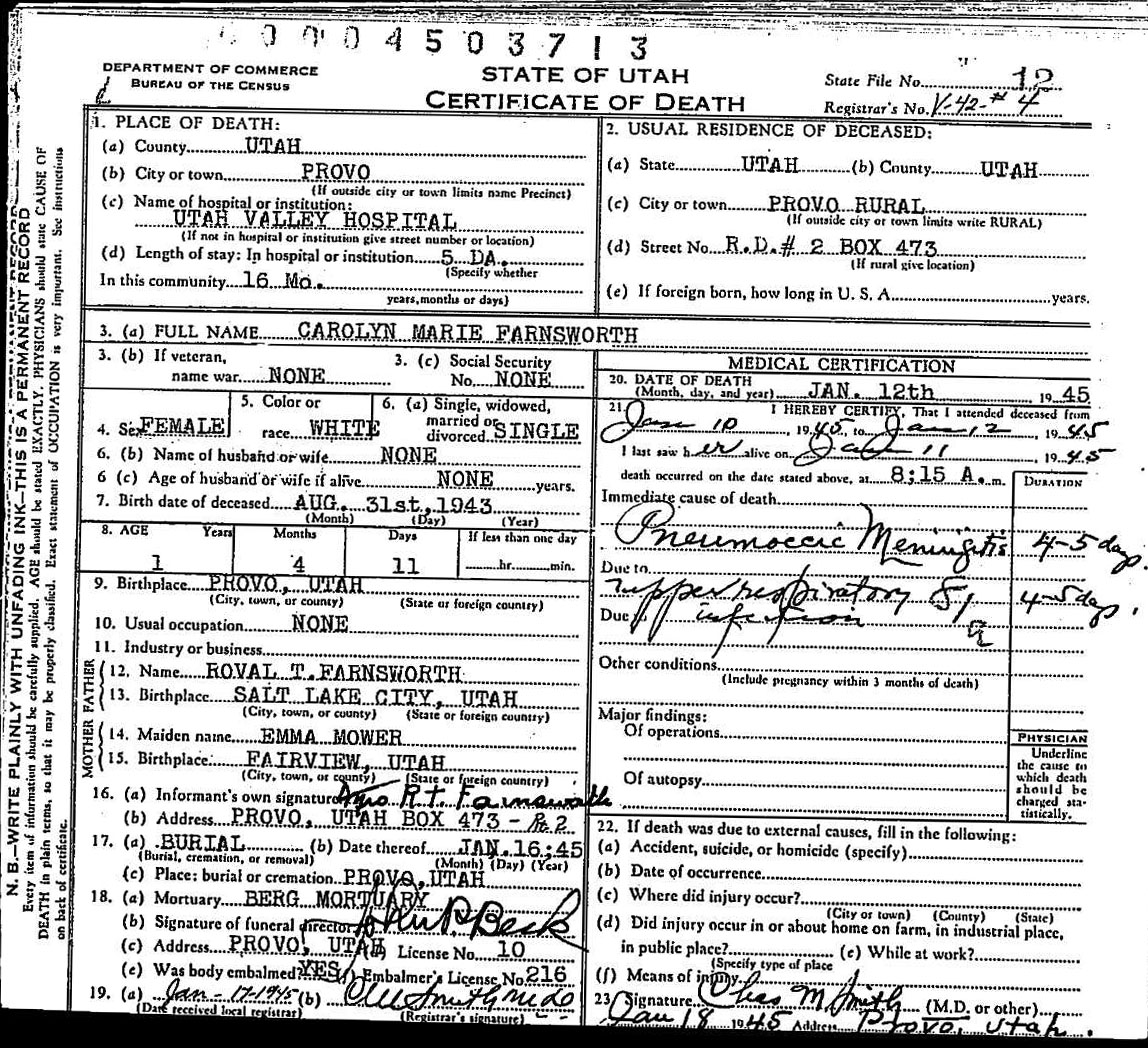 0 0 0 4 5 0 3 7 1 3
DEPARTMENT OF COMMERCE
BUREAU OF THE CENSUS
STATE OF UTAH
CERTIFICATE OF DEATH
State File No. 12
Registrar's No. V-42-#4
1. PLACE OF DEATH:
(a) County UTAH
(b) City or town PROVO
(If outside city or town limits name Precinct)
(c) Name of hospital or institution:
UTAH VALLEY HOSPITAL
(If not in hospital or institution give street number or location)
(d) Length of stay: In hospital or institution 5 DA.
(Specify whether
In this community 16 Mo.
years, months or days)
2. USUAL RESIDENCE OF DECEASED:
(a) State UTAH (b) County UTAH
(c) City or town PROVO RURAL
(If outside city or town limits write RURAL)
(d) Street No. R.D.# 2 BOX 473
(If rural give location)
(e) If foreign born, how long in U. S. A. years.
3. (a) FULL NAME CAROLYN MARIE FARNSWORTH
3. (b) If veteran,
name war NONE
3. (c) Social Security
No. NONE
4. Sex FEMALE
5. Color or
race WHITE
6. (a) Single, widowed,
married or
divorced SINGLE
6. (b) Name of husband or wife NONE
6 (c) Age of husband or wife if alive NONE years.
7. Birth date of deceased AUG. 31st, 1943
(Month) (Day) (Year)
8. AGE Years Months Days If less than one day
1 4 11 hr. min.
9. Birthplace PROVO, UTAH
(City, town, or county) (State or foreign country)
10. Usual occupation NONE
11. Industry or business
FATHER
12. Name ROYAL T. FARNSWORTH
13. Birthplace SALT LAKE CITY, UTAH
(City, town, or county) (State or foreign country)
MOTHER
14. Maiden name EMMA MOWER
15. Birthplace FAIRVIEW, UTAH
(City, town, or county) (State or foreign country)
16. (a) Informant's own signature Mrs R.T. Farnsworth
(b) Address PROVO, UTAH BOX 473 - Rt 2
17. (a) BURIAL (b) Date thereof JAN. 16; 45
(Burial, cremation, or removal) (Month) (Day) (Year)
(c) Place: burial or cremation PROVO, UTAH
18. (a) Mortuary BERG MORTUARY
(b) Signature of funeral director Beck
(c) Address PROVO, UTAH License No. 10
(e) Was body embalmed? YES Embalmer's License No. 216
19. (a) Jan - 17-1945 (b)
(Date received local registrar) (Registrar's signature)
MEDICAL CERTIFICATION
20. DATE OF DEATH
(Month, day, and year) JAN. 12th 19 45
21. I HEREBY CERTIFY, That I attended deceased from
Jan 10, 1945, to Jan 12, 1945
I last saw her alive on Jan 11 1945
death occurred on the date stated above, at 8;15 A. m.
DURATION
Immediate cause of death
Pneumoccic Meningitis 4-5 days.
Due to
upper respiratory 4-5 days.
Due to infection
Other conditions
(Include pregnancy within 3 months of death)
Major findings:
Of operations
Of autopsy
PHYSICIAN
Underline
the cause to
which death
should be
charged sta-
tistically.
22. If death was due to external causes, fill in the following:
(a) Accident, suicide, or homicide (specify)
(b) Date of occurrence
(c) Where did injury occur?
(City or town) (County) (State)
(d) Did injury occur in or about home on farm, in industrial place,
in public place? (e) While at work?
(Specify type of place
(f) Means of injury
23 Signature Chas M. Smith (M.D. or other)
Jan 18 1945 Address Provo, Utah.
N. B.—WRITE PLAINLY WITH UNFADING INK—THIS IS A PERMANENT RECORD
Every item of information should be carefully supplied. AGE should be stated EXACTLY. PHYSICIANS should state CAUSE OF
DEATH in plain terms, so that it may be properly classified. Exact statement of OCCUPATION is very important. See instructions
on back of certificate.